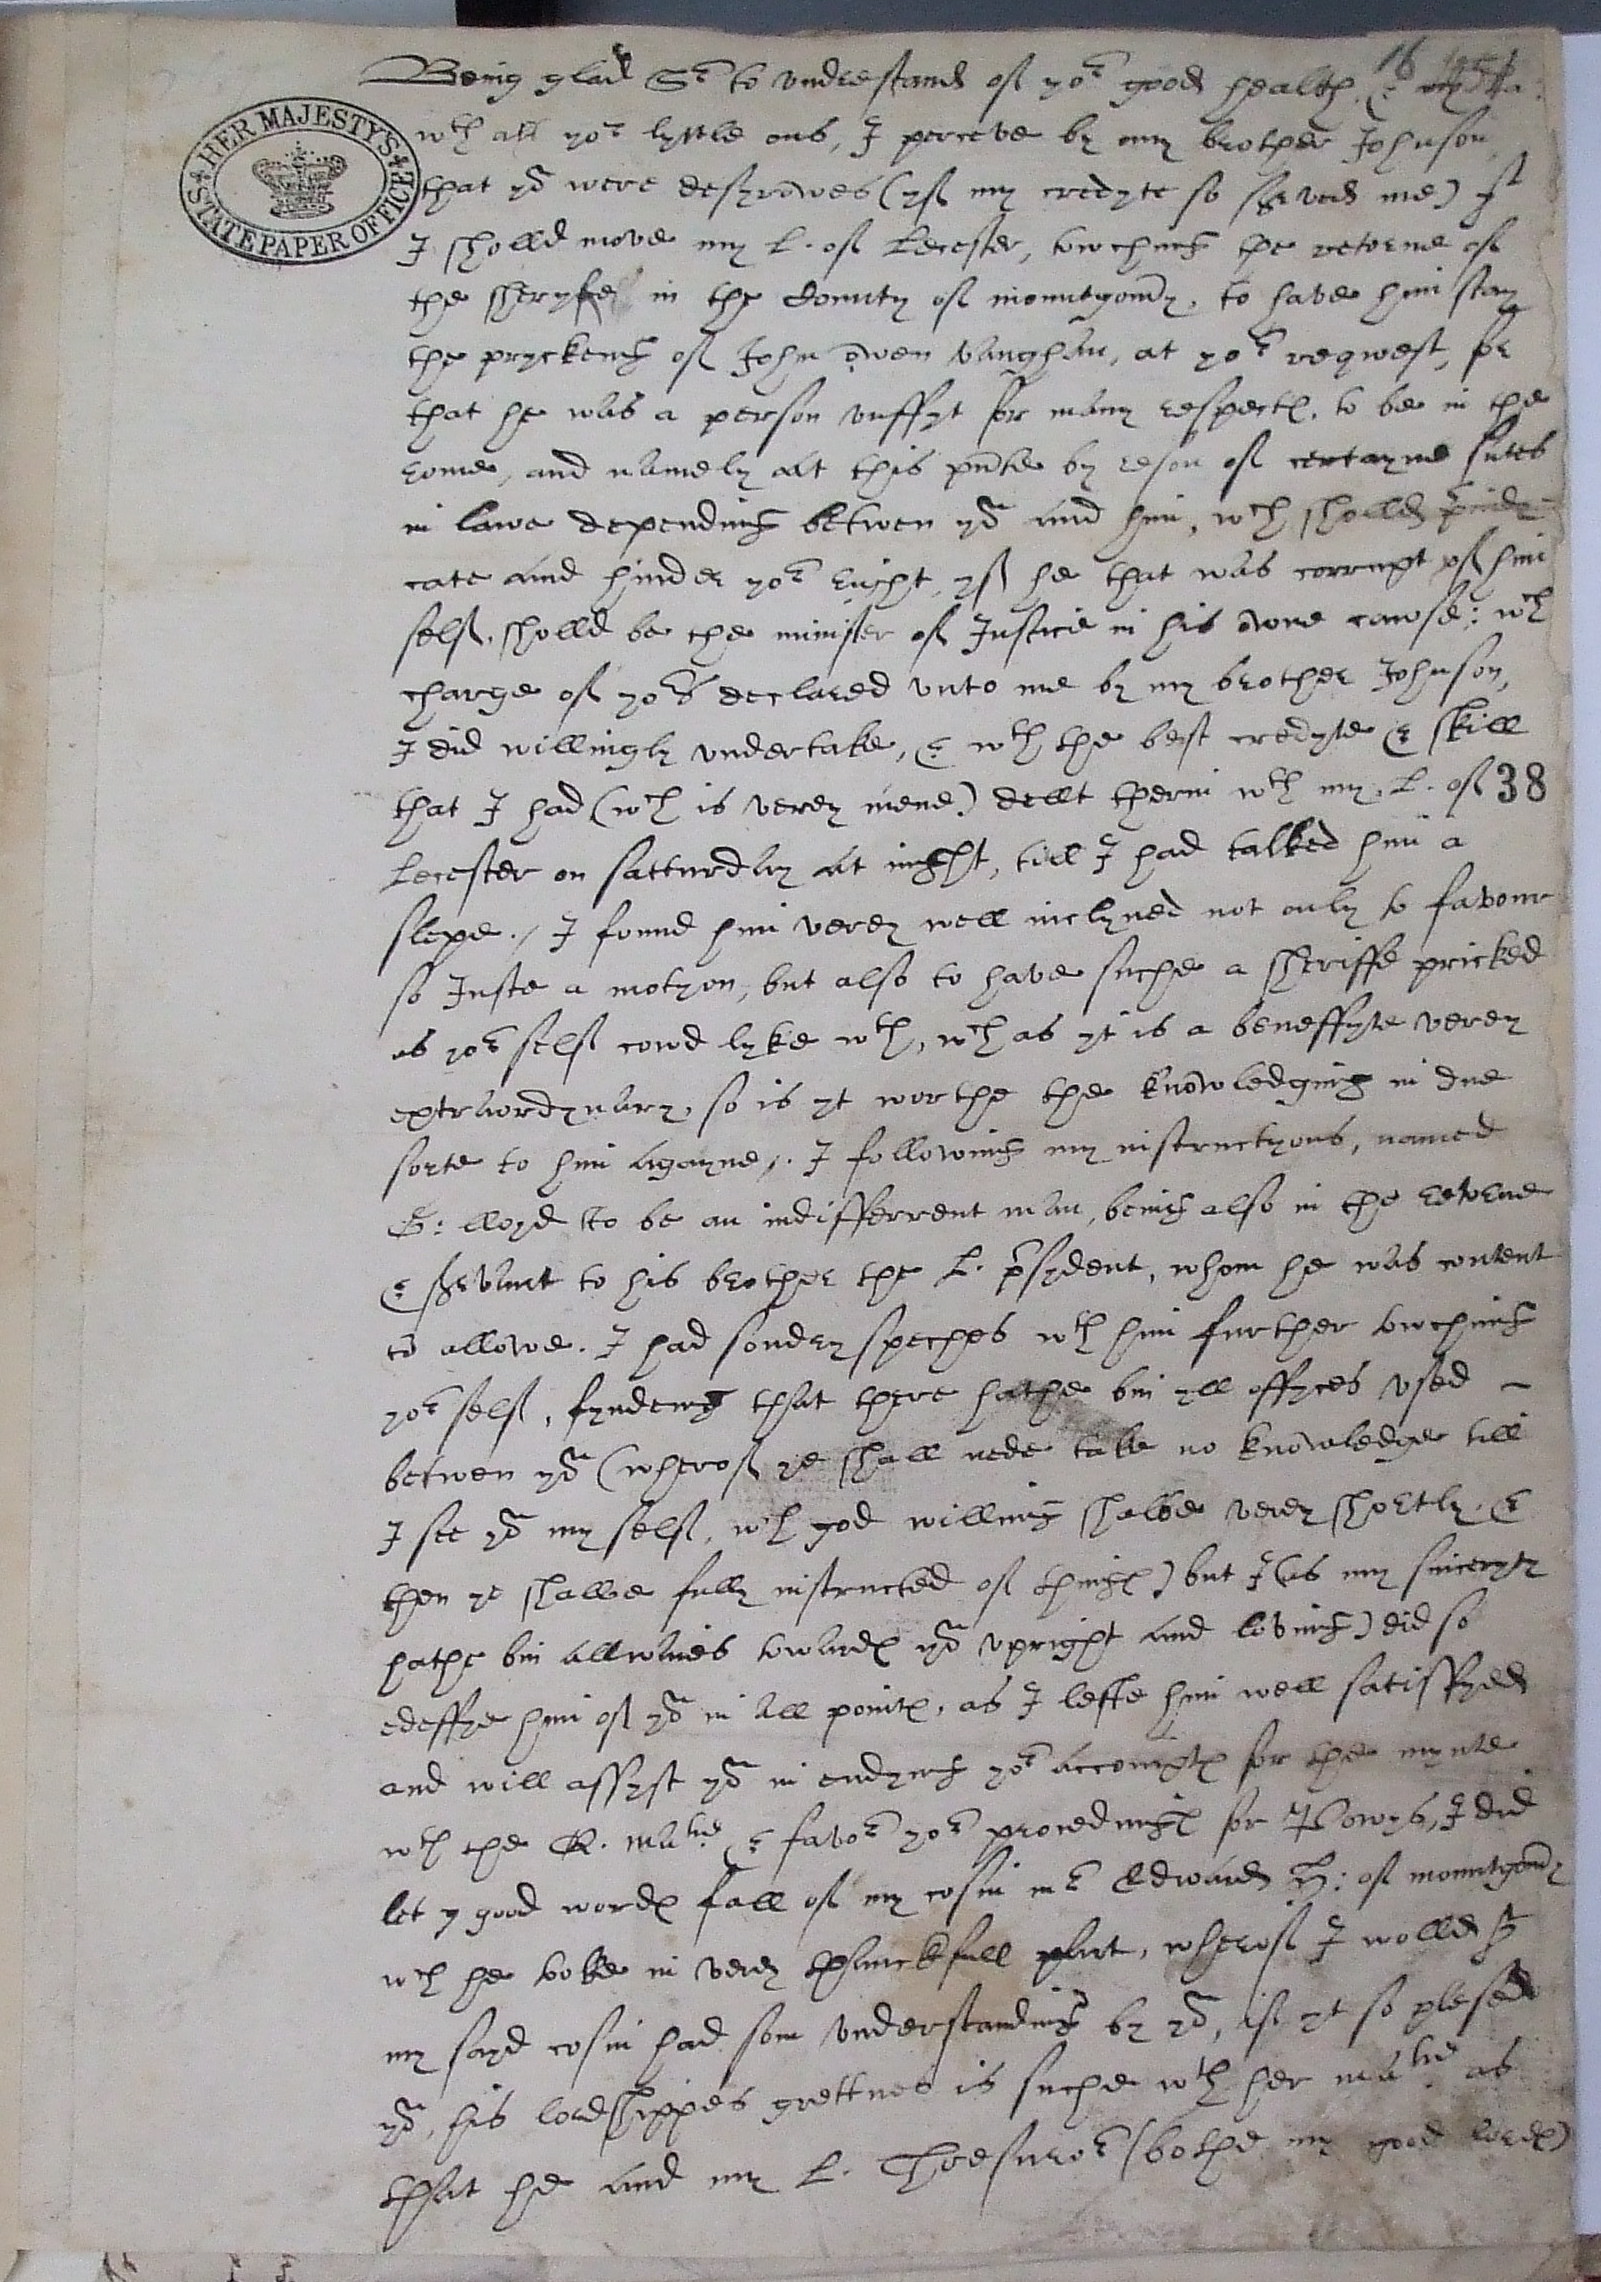 16
Being glad Sr to understand of yor good health, & my La:
HER MAJESTY'S STATE PAPER OFFICE
wth all yor lyttle ons, I perceve by my brother Johnson,
that yo were desyrowes (yf my credyte so servd me) yt
I sholld move my L. of Lecester, towching the retorne of
the sheryfe in the Countty of mountgomy, to have him stay
the pryckeng of John owen vaughan, at yor reqwest, for
that he was a person unffyt for many respects, to be in the
rome, and namely at this pnte by reson of certayne sutes
in lawe depending betwen yo and him, wch sholld pindi=
cate and hinder yor right, yf he that was corrupt of him
self, sholld be the minister of Justice in his owne cawse: wch
charge of yors declared unto me by my brother Johnson,
I did willingly undertake, & wth the best credyte & skill
that I had (wch is verey mene) dellt therin wth my L. of
38
Lecester on satturday at night, till I had talked him a
slepe./ I found him verey well inclyned not only to favour
so Juste a motyon, but also to have suche a sheriffe pricked
as yor self cowd lyke wth, wch as yt is a beneffyte verey
extraordynary, so is yt worthe the knowledging in due
sorte to him agayne,. I following my instructyons, named
G: lloyd to be an indifferrent man, being also in the retorne
& servant to his brother the L. psydent, whom he was content
to allowe. I had sondry speches wth him further towching
yor self, fyndeng that there hathe bin yll offyces used ~
betwen yo (wherof ye shall nede take no knowledge till
I see yo my self, wch god willing shalbe verey shortly, &
then ye shalbe fully instructed of things) but I (as my sinceryty
hathe bin allwaies towards yo upright and loving) did so
edeffye him of yo in all points, as I lefte him well satisffyed
and will assyst yo in endyng yor accompts for the mynte
wth the Q. matie & favor yor procedings for Powys, I did
let y good words fall of my cosin mr Edward H: of mountgomy
wch he toke in verey thanckfull part, wherof I wolld
my sayd cosin had som understanding by yo, if yt so plesed
yo, his lordshippes grettnes is suche wth her matie as
that he and my L. Thresuror (bothe my good lords)